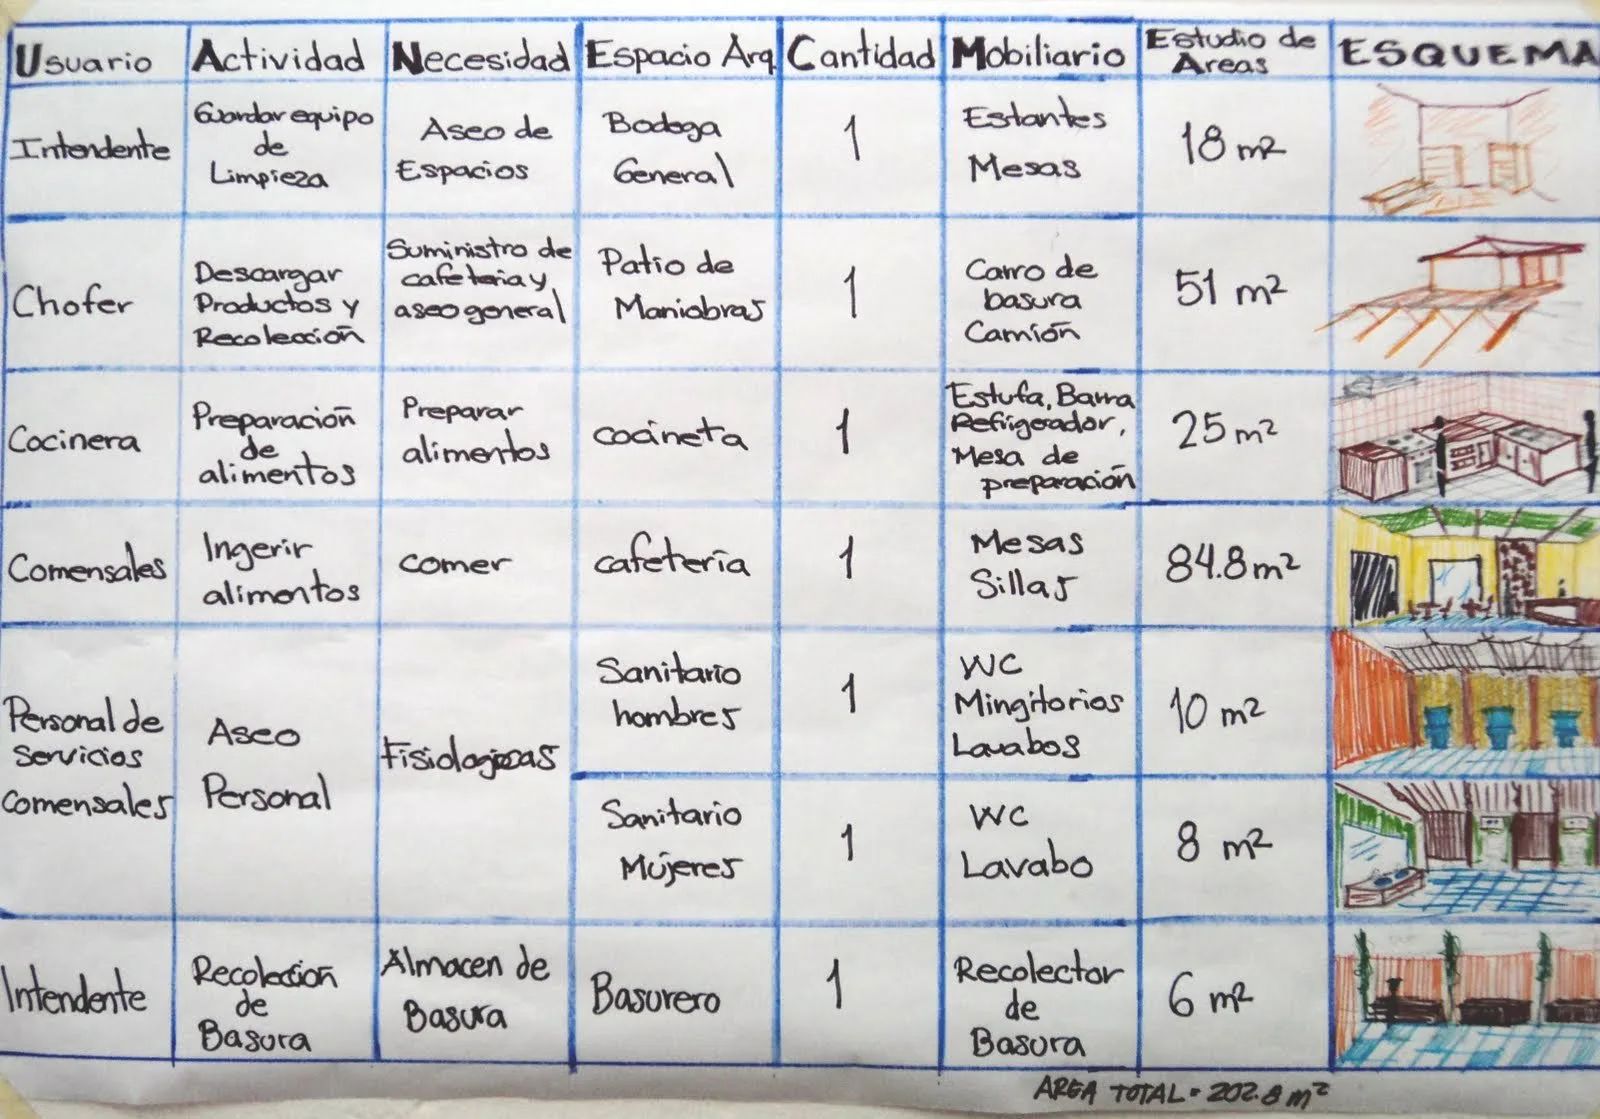 Usuario Actividad Necesidad Espacio Arq. Cantidad Mobiliario Estudio de Areas ESQUEMA
Intendente
Guardar equipo
de
Limpieza
Aseo de
Espacios
Bodega
General
1
Estantes
Mesas
18 m²
Chofer
Descargar
Productos y
Recolección
Suministro de
cafeteria y
aseo general
Patio de
Maniobras
1
Carro de
basura
Camión
51 m²
Cocinera
Preparación
de
alimentos
Preparar
alimentos
cocineta
1
Estufa, Barra
Refrigerador,
Mesa de
preparación
25 m²
Comensales
Ingerir
alimentos
comer
cafetería
1
Mesas
Sillas
84.8 m²
Personal de
servicios
comensales
Aseo
Personal
Fisiologicas
Sanitario
hombres
1
WC
Mingitorios
Lavabos
10 m²
Sanitario
Mujeres
1
WC
Lavabo
8 m²
Intendente
Recolección
de
Basura
Almacen de
Basura
Basurero
1
Recolector
de
Basura
6 m²
AREA TOTAL = 202.8 m²